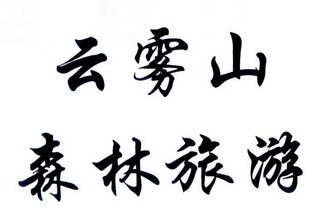 云雾山
森林旅游